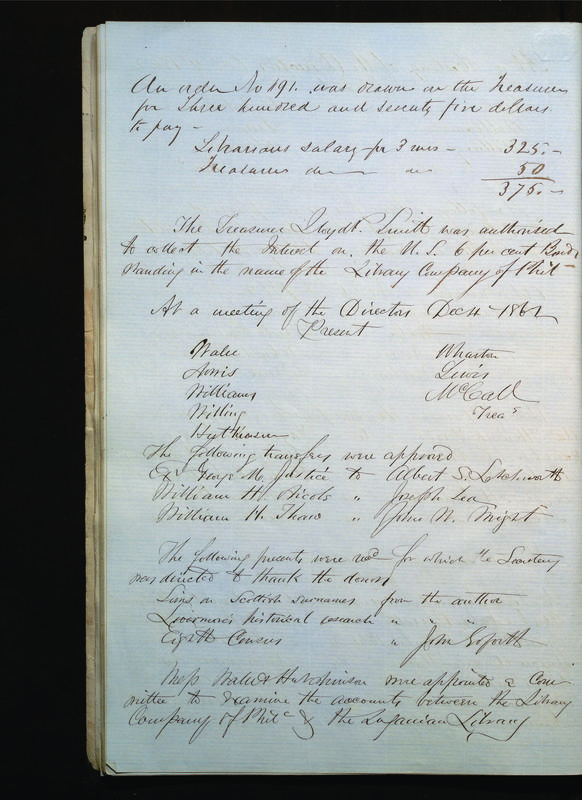 An order No 191. was drawn on the Treasurer
for Three hundred and seventy five dollars
to pay –
Librarians salary for 3 mos – 325.–
Treasurers do do 50
375.–
The Treasurer Lloyd P. Smith was authorised
to collect the Interest on the U.S. 6 per cent Bonds
standing in the name of the Library Company of Phil
At a meeting of the Directors Dec 4 1862
Present
Waln Wharton
Norris Lewis
Williams McCall
Willing Treas
Hutchinson
The following transfers were approved
Exr George M. Justice to Albert S. Letchworth
William H. Nicols " Joseph Lea
William H. Thaw " John N. Wright
The following presents were recd for which the Secretary
was directed to thank the donors
Sims on Scottish surnames from the author
Livermore's historical research " " "
Eighth Census " John Goforth
Mess Waln & Hutchinson were appointed a Com
mittee to examine the accounts between the Library
Company of Phil & the Loganian Library